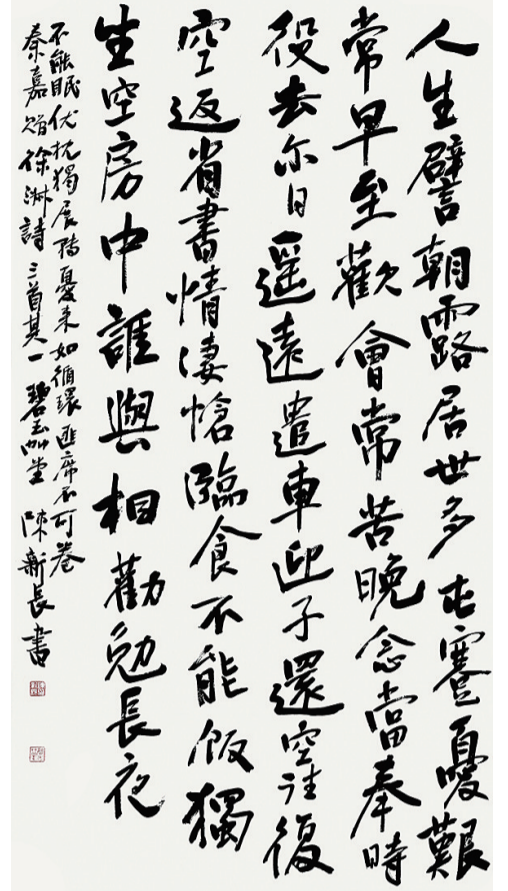 人生譬朝露居世多屯蹇憂艱
常早至歡會常苦晚念當奉時
役去尔日遥遠遣車迎子還空往復
空返省書情凄愴臨食不能飯獨
生空房中誰與相勸勉長夜
不能眠伏枕獨展轉憂来如循環匪席不可卷
秦嘉贈徐淑詩三首其一 碧玉艸堂 陳新長書